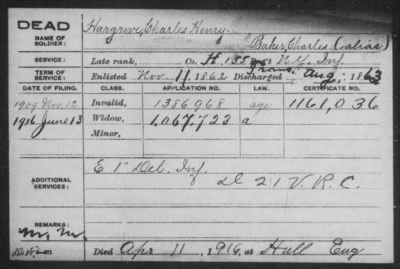 DEAD
NAME OF SOLDIER:
Hargreve, Charles Henry
Baker, Charles (alias)
SERVICE:
Late rank, Co. H. 158 N.Y. Inf.
TERM OF SERVICE:
Enlisted Nov. 11, 1862 Discharged Aug. 1863
DATE OF FILING. CLASS. APPLICATION NO. LAW. CERTIFICATE NO.
1909 Nov. 12 Invalid, 1386968 age 1161,036
1916 June 13 Widow, 1,067,723 a
Minor,
ADDITIONAL SERVICES:
E 1" Del. Inf.
D 21 V. R. C.
REMARKS:
Died Apr 11, 1916, at Hull Eng